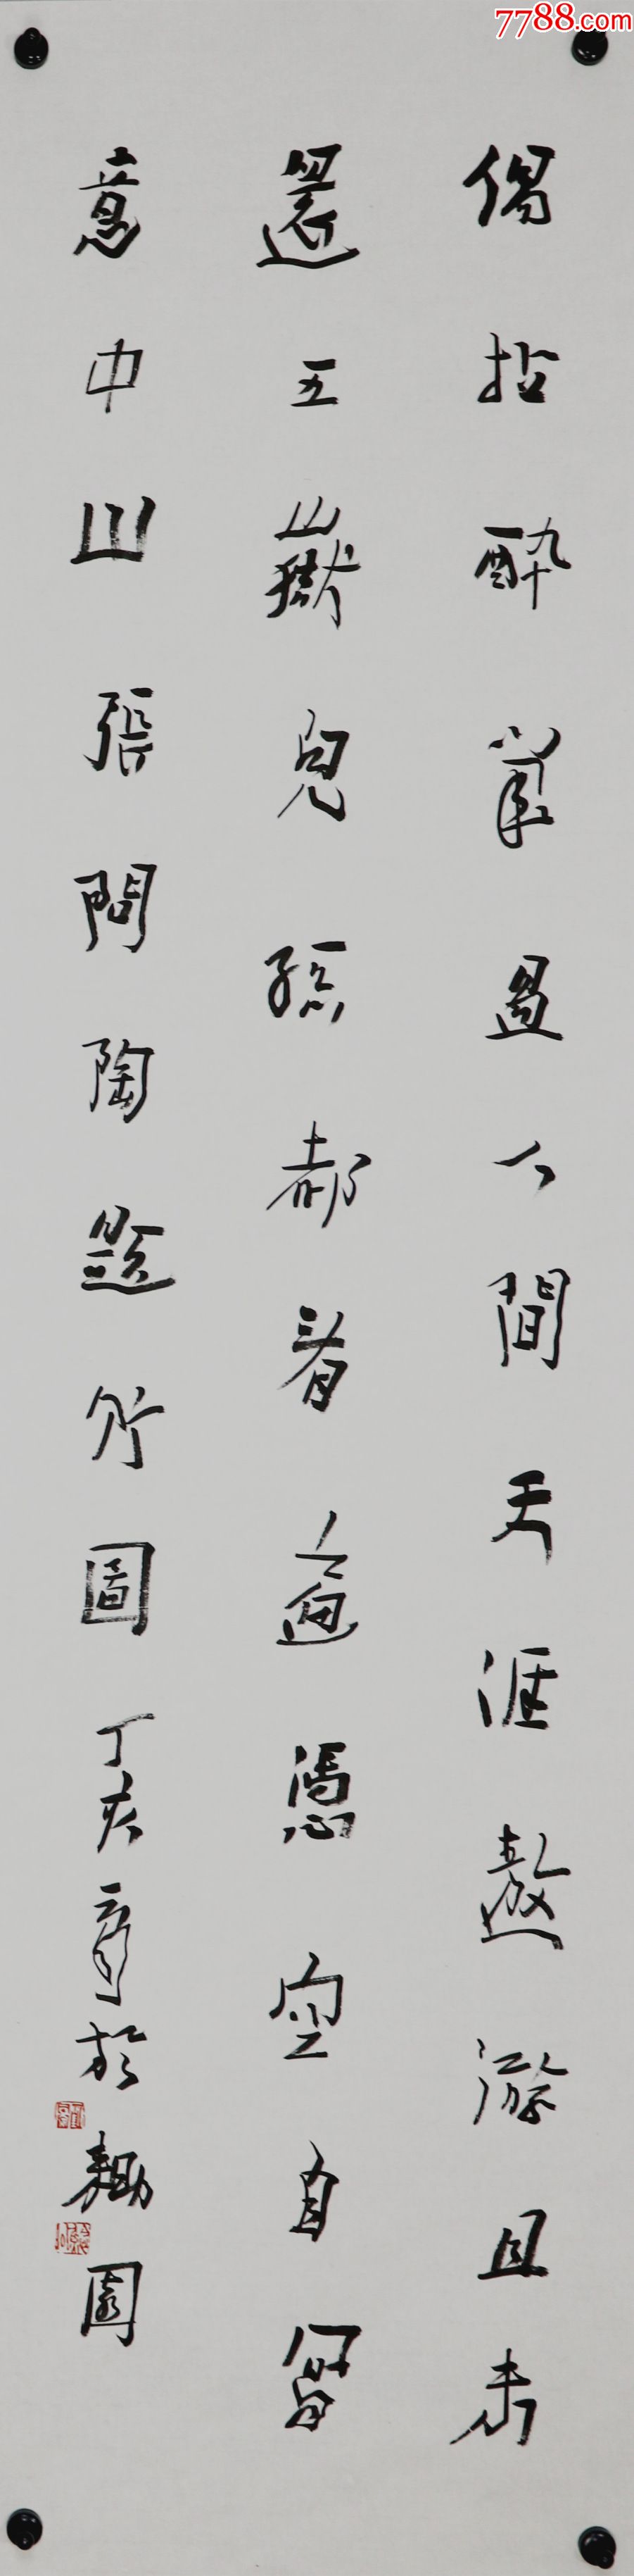 7788.com
偶拈醉筆過人間天涯遨游且未
還五嶽兒孫都看遍憑空自寫
意中山張問陶題竹圖丁亥於耡園